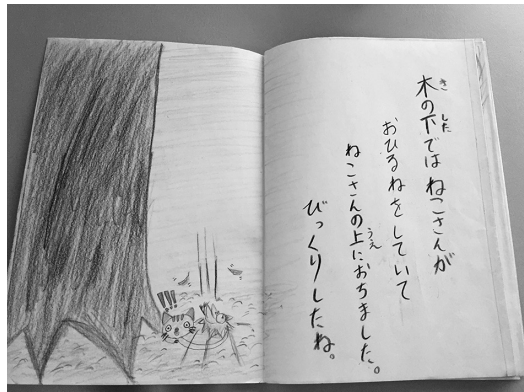 木の下ではねこさんが
おひるねをしていて
ねこさんの上におちました。
びっくりしたね。
きした
うえ
!!